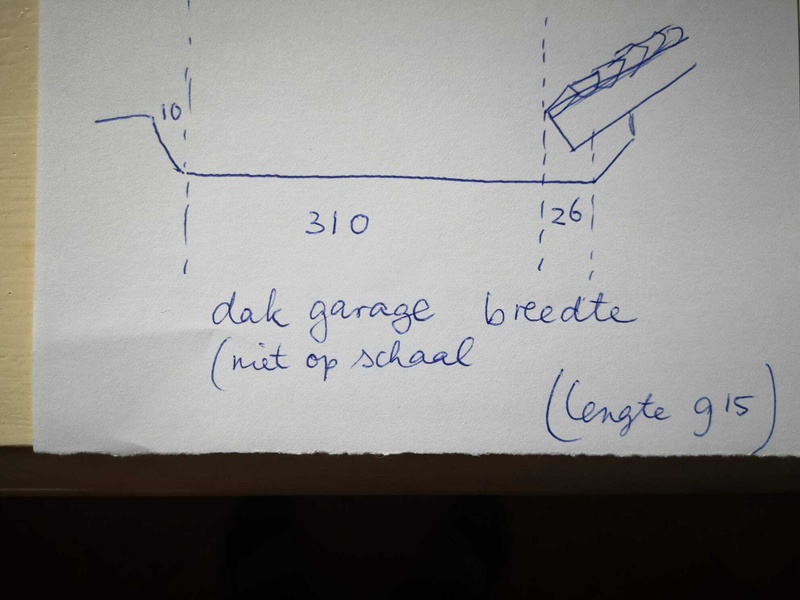 10
310
26
dak garage breedte
(niet op schaal
(lengte 915)